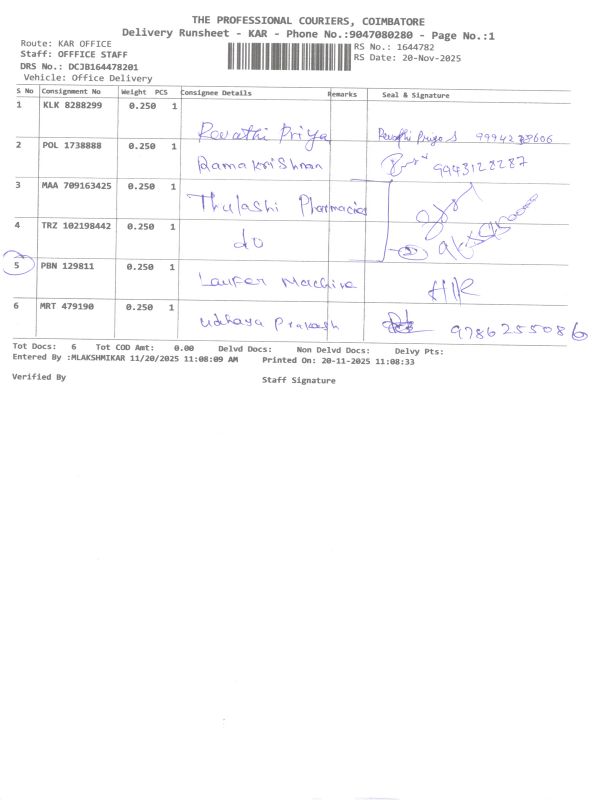 THE PROFESSIONAL COURIERS, COIMBATORE
Delivery Runsheet - KAR - Phone No.:9047080280 - Page No.:1
Route: KAR OFFICE
RS No.: 1644782
Staff: OFFFICE STAFF
RS Date: 20-Nov-2025
DRS No.: DCJB164478201
Vehicle: Office Delivery
S No Consignment No Weight PCS Consignee Details Remarks Seal & Signature
1 KLK 8288299 0.250 1
Revathi Priya Revathi Priya S
2 POL 1738888 0.250 1
Ramakrishnan 9943128287
3 MAA 709163425 0.250 1
Thulashi Pharmacies
4 TRZ 102198442 0.250 1
do
5 PBN 129811 0.250 1
Laufer Machine
6 MRT 479190 0.250 1
Udhaya Prakash 9786255086
Tot Docs: 6 Tot COD Amt: 0.00 Delvd Docs: Non Delvd Docs: Delvy Pts:
Entered By :MLAKSHMIKAR 11/20/2025 11:08:09 AM Printed On: 20-11-2025 11:08:33
Verified By Staff Signature